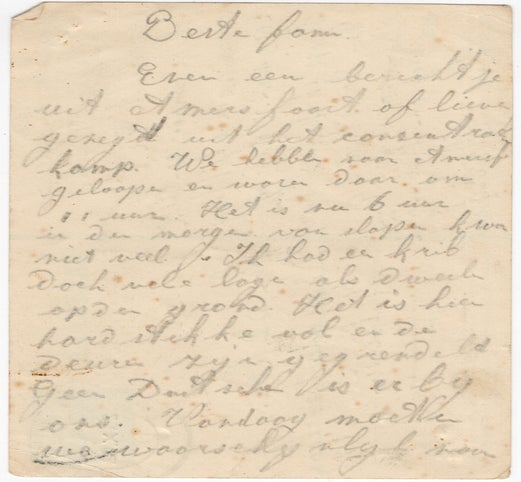 Beste fam.
Even een berichtje
uit Amersfoort of liever
gezegd uit het consentratie
kamp. We hebben naar Amersf
geloopen en waren daar om
11 uur. Het is nu 6 uur
in den morgen van slapen kwam
niet veel. Ik had een krib
doch vele lagen als dweilen
op den grond. Het is hier
hard stikke vol en de
deuren zijn gegrendeld
Geen Duitsch is er bij
ons. Vandaag moeten
we waarschijnlijk naar